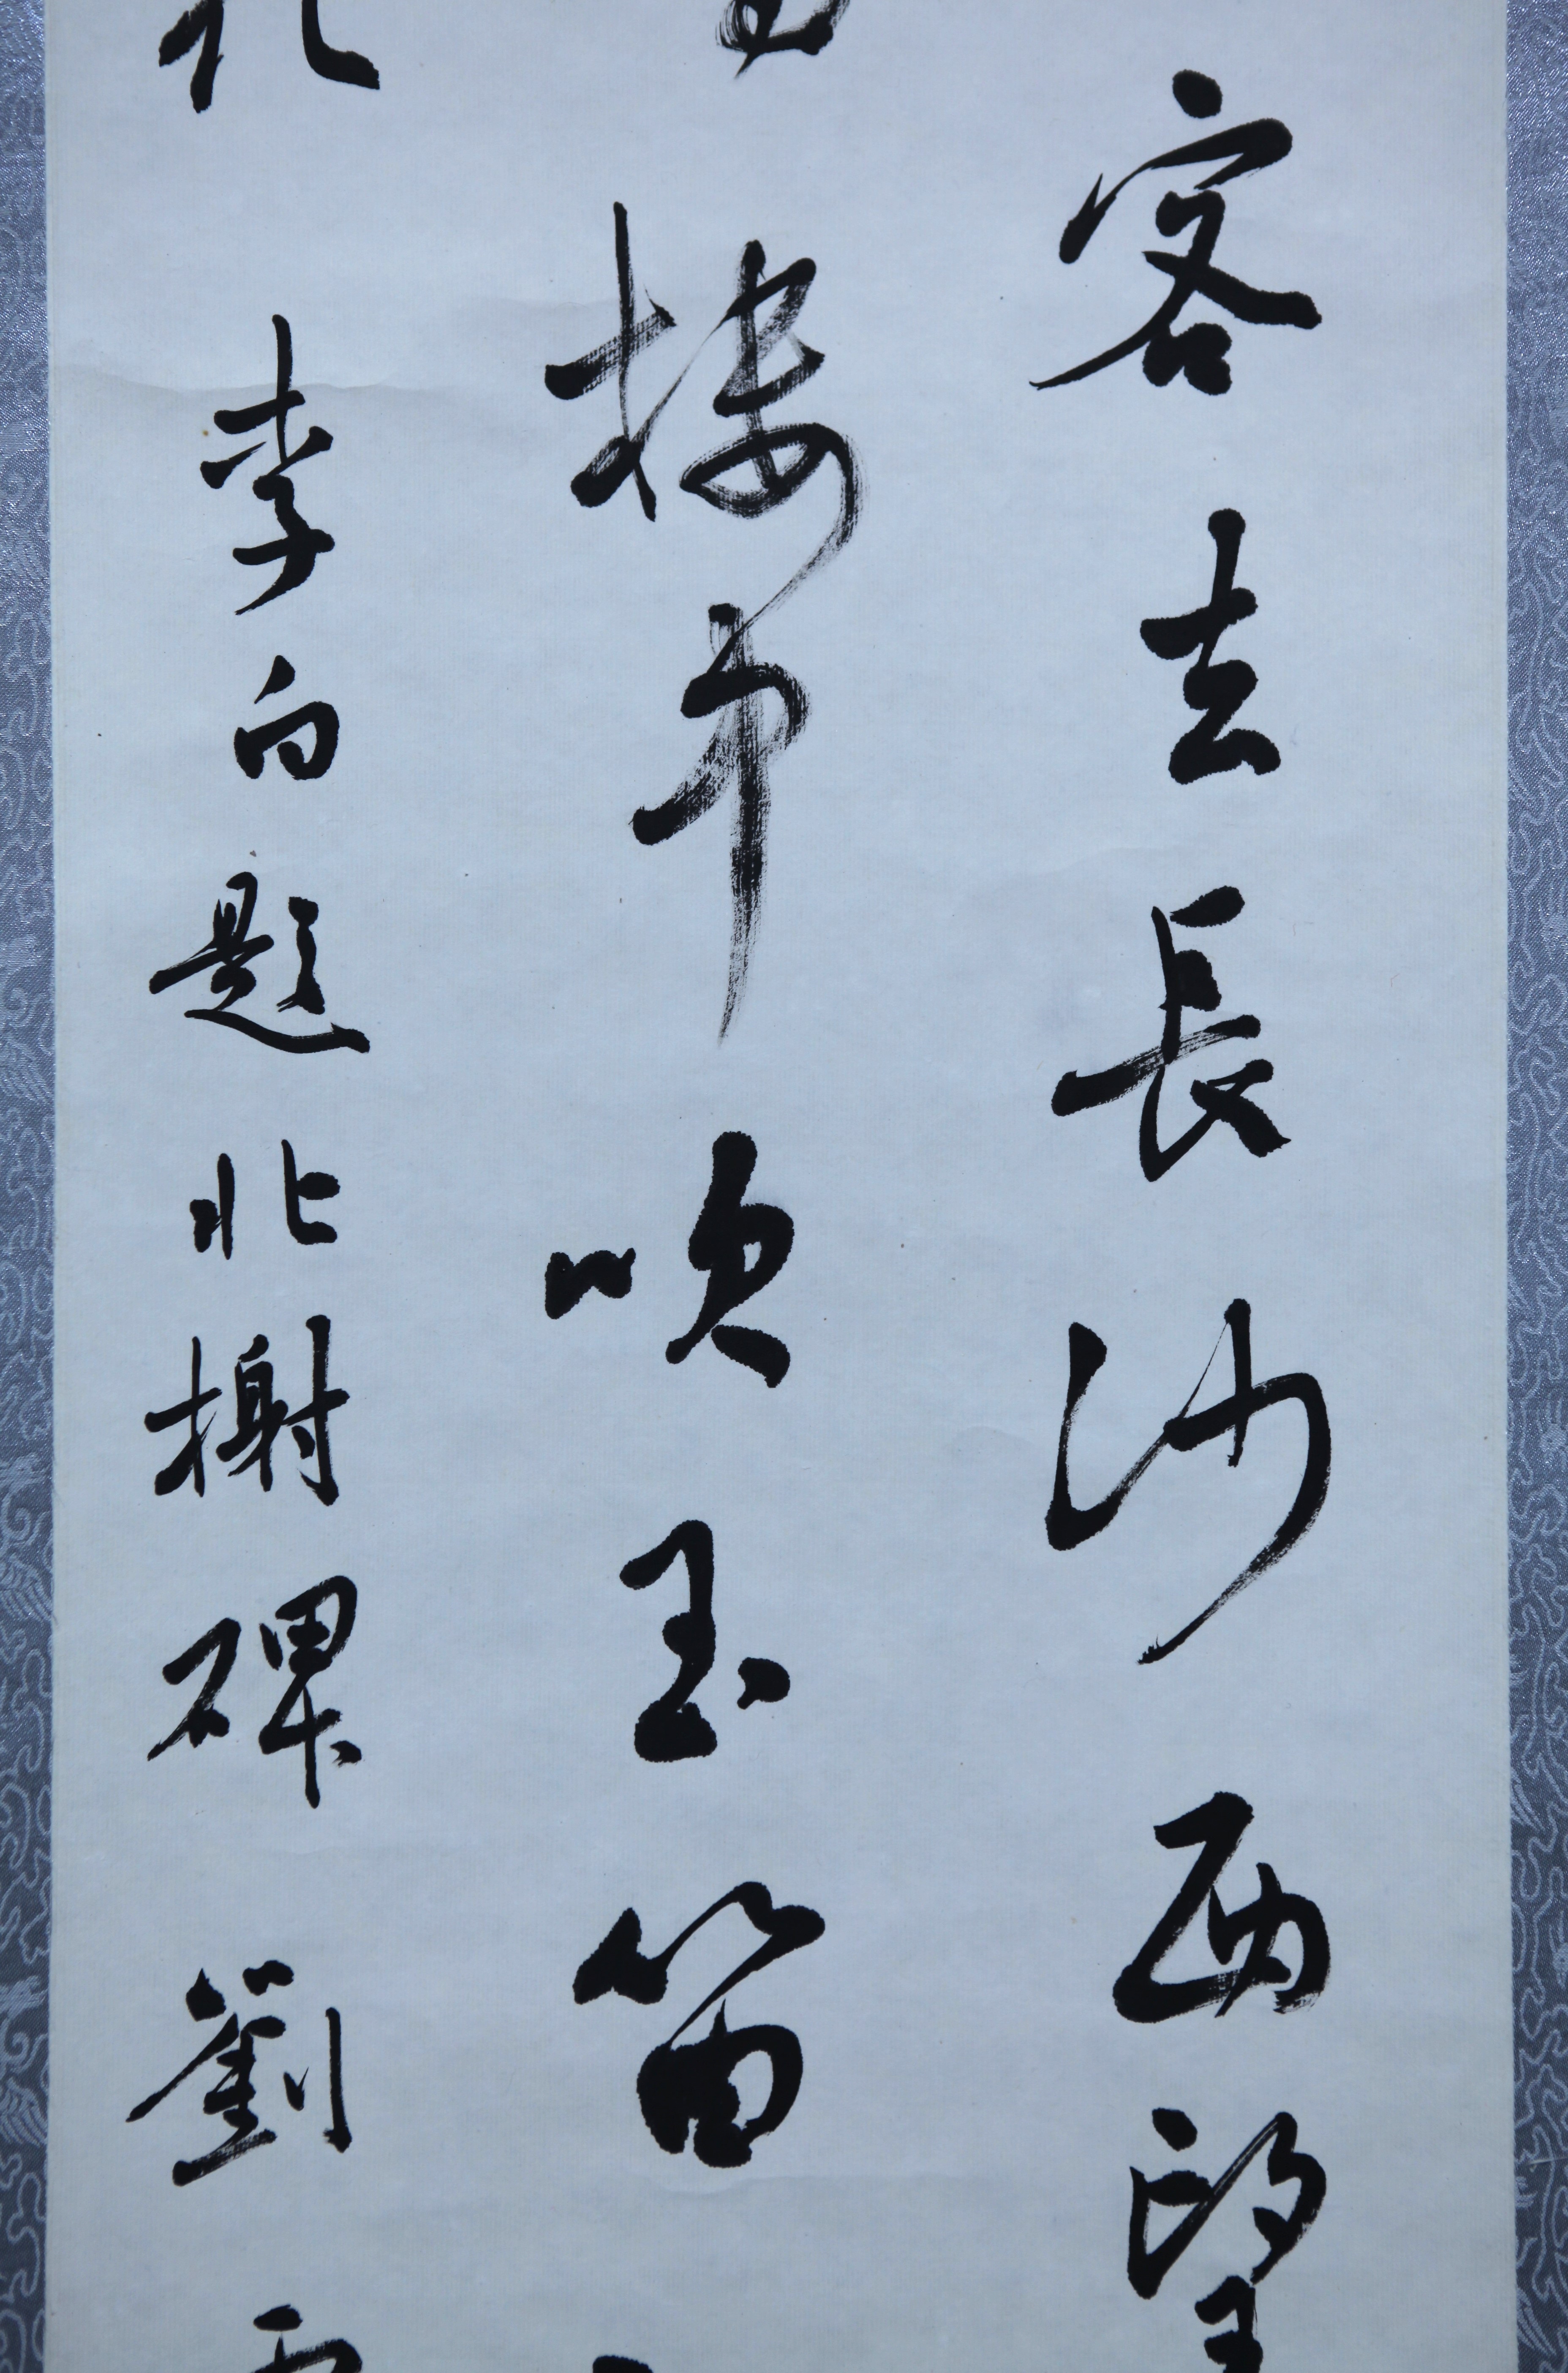 客去長沙西望
樓中吹玉笛
李白題北榭碑 劉